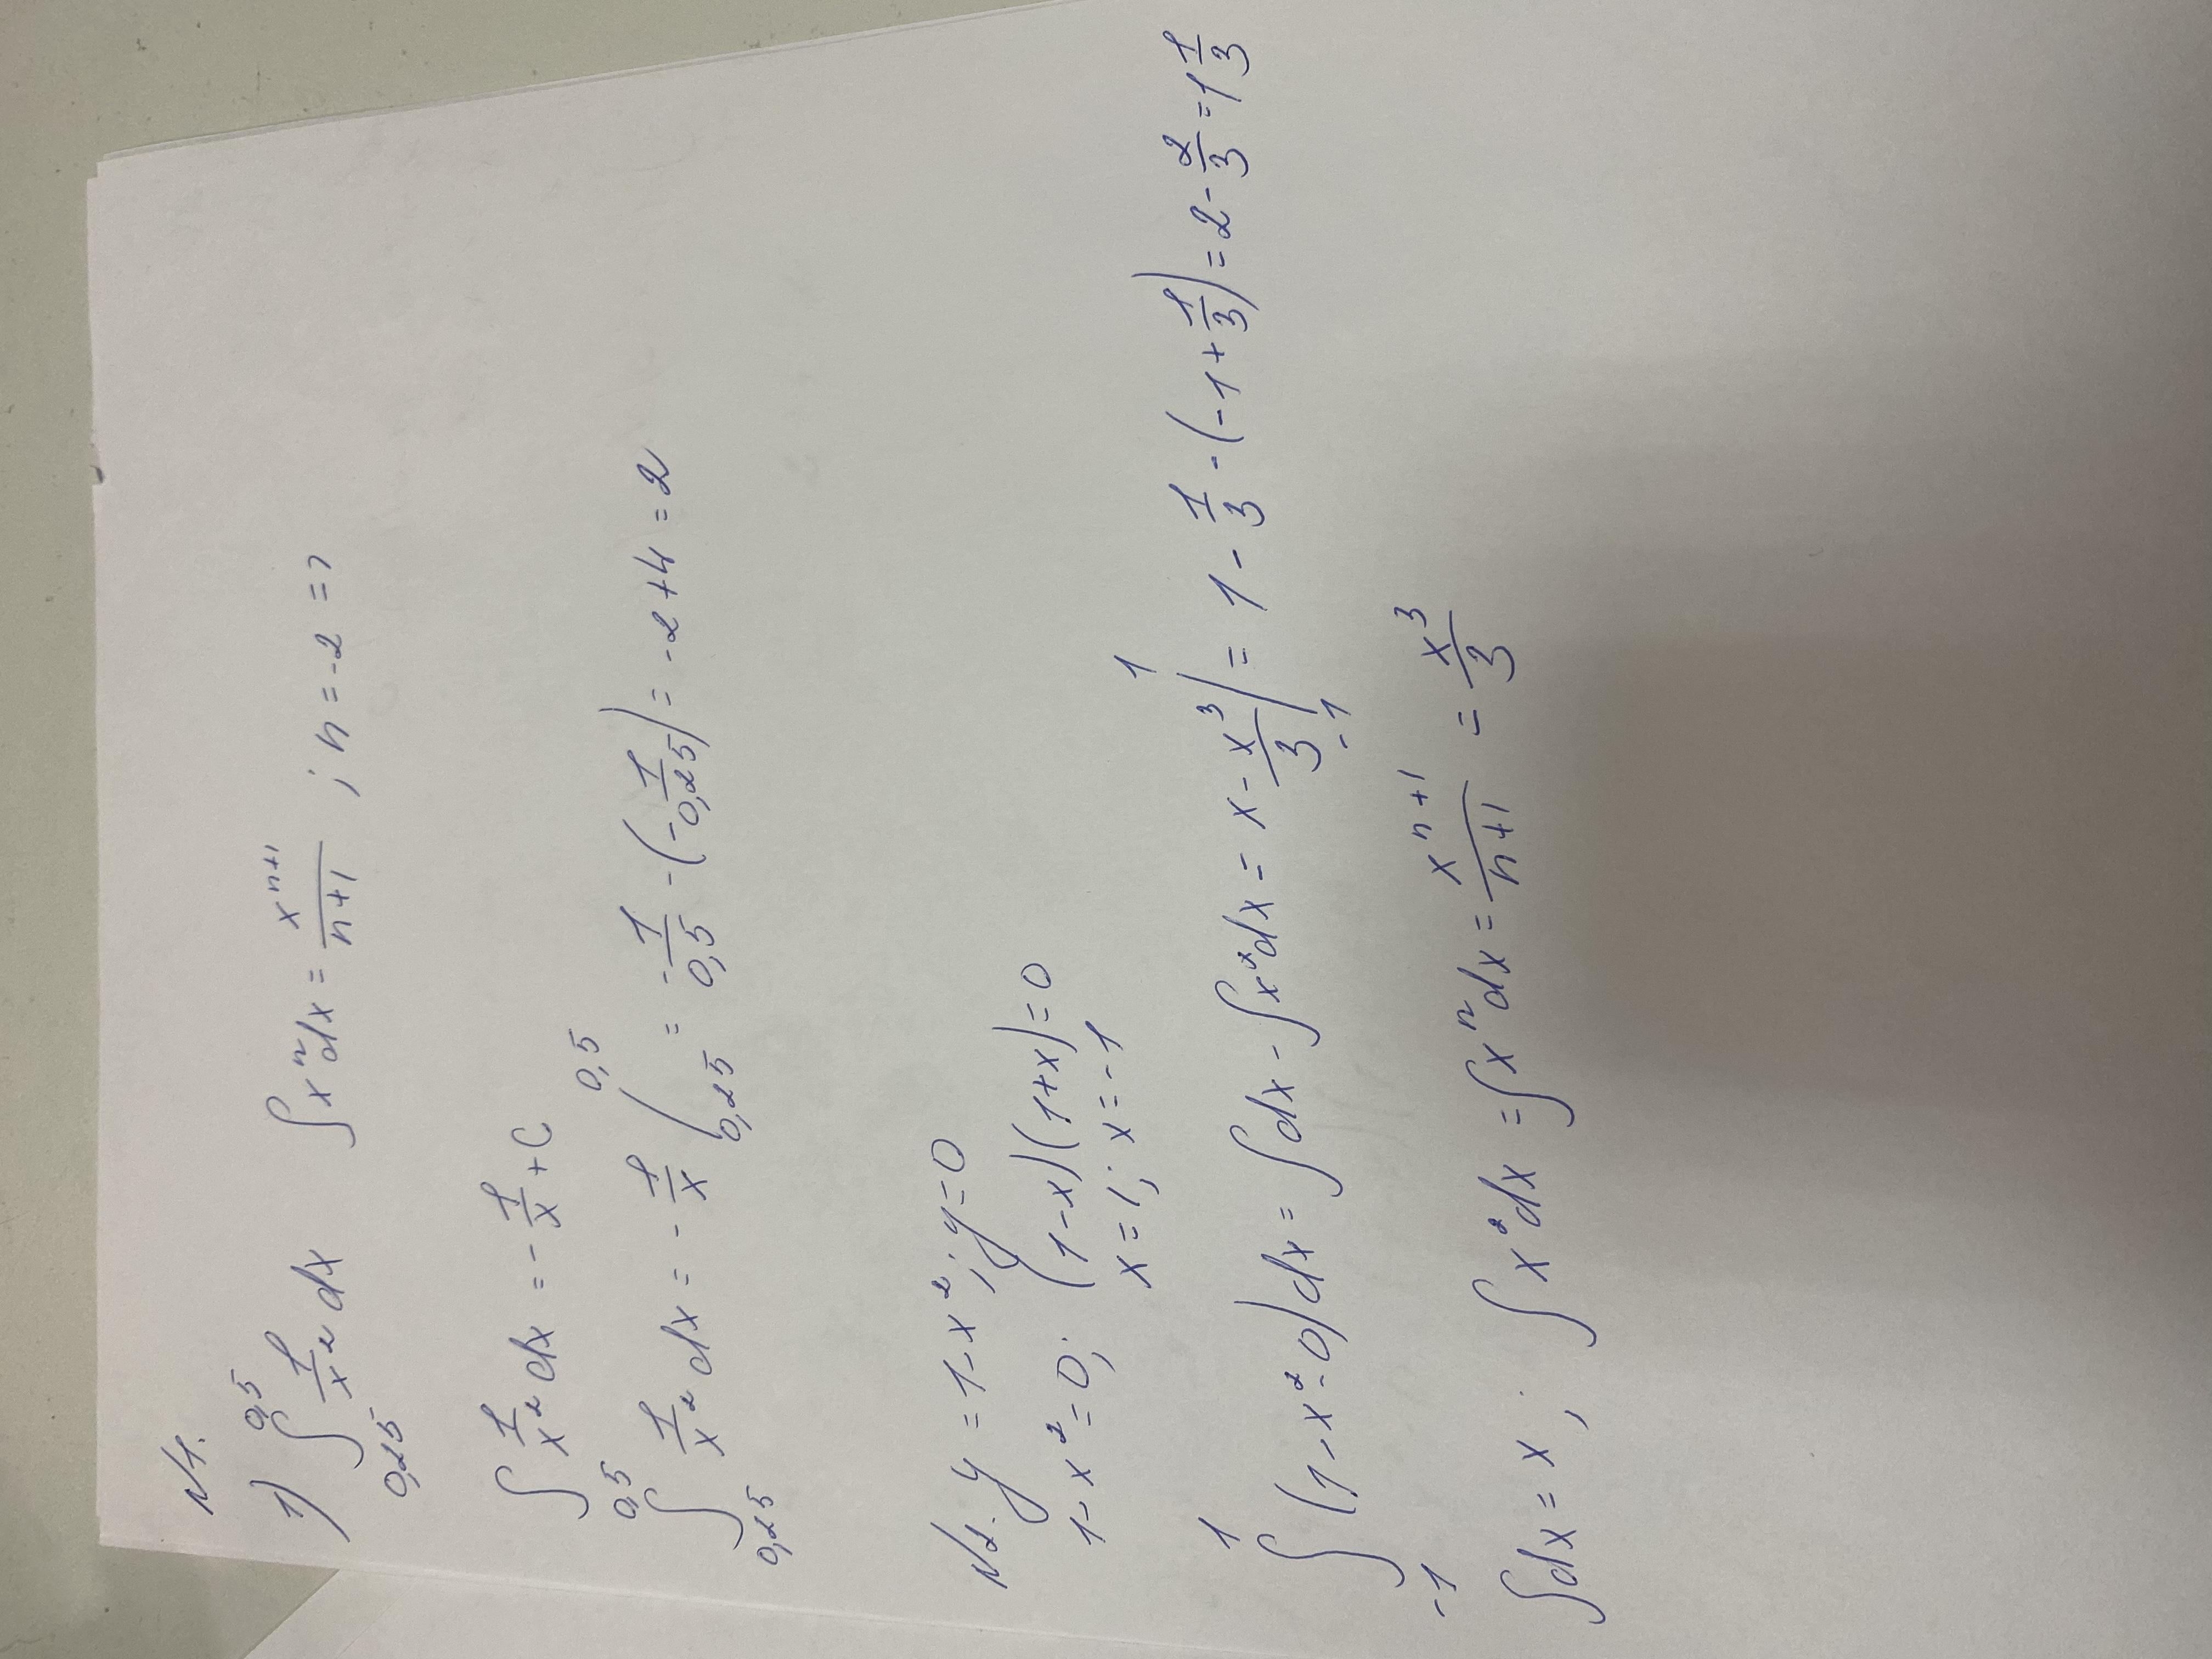 N1.
1) ∫_{0,25}^{0,5} 1/x² dx   ∫xⁿdx = x^{n+1}/(n+1) ; n = -2 =>
∫ 1/x² dx = - 1/x + C
∫_{0,25}^{0,5} 1/x² dx = - 1/x |_{0,25}^{0,5} = - 1/0,5 - (- 1/0,25) = -2 + 4 = 2
N2. y = 1 - x² ; y = 0
1 - x² = 0; (1-x)(1+x) = 0
x = 1; x = -1
∫_{-1}^{1} (1 - x² - 0)dx = ∫dx - ∫x²dx = x - x³/3 |_{-1}^{1} = 1 - 1/3 - (-1 + 1/3) = 2 - 2/3 = 1 1/3
∫dx = x ; ∫x²dx = ∫xⁿdx = x^{n+1}/(n+1) = x³/3